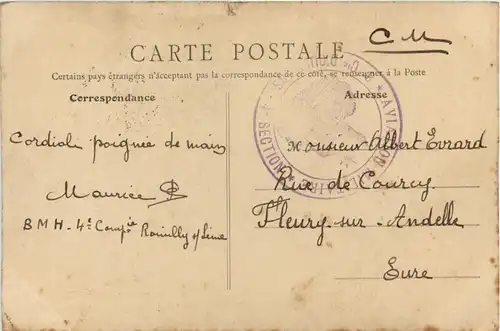 C M
CARTE POSTALE
Certains pays étrangers n'acceptant pas la correspondance de ce côté, se renseigner à la Poste
Correspondance
Cordiale poignée de main
Maurice
BMH - 4e Compie Romilly s/ Seine
Adresse
Monsieur Albert Evrard
Rue de Courcy
Fleury-sur-Andelle
Eure
AVIATION MILITAIRE
SECTION